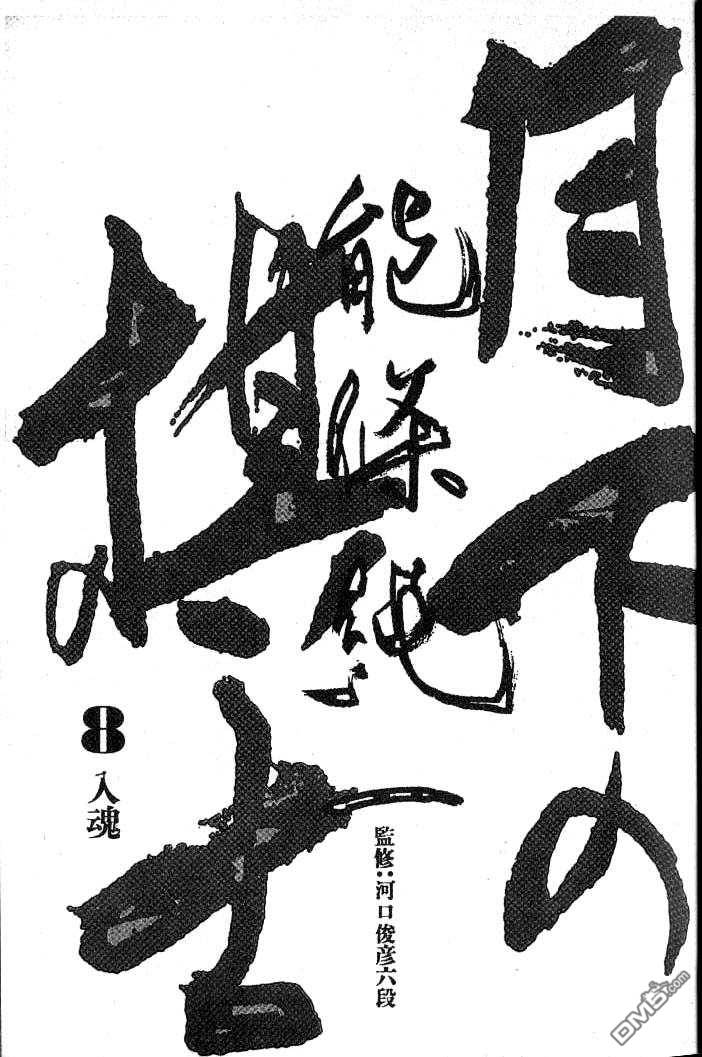 月下の
棋士
能條純一
監修:河口俊彦六段
8
入魂
DM5.com